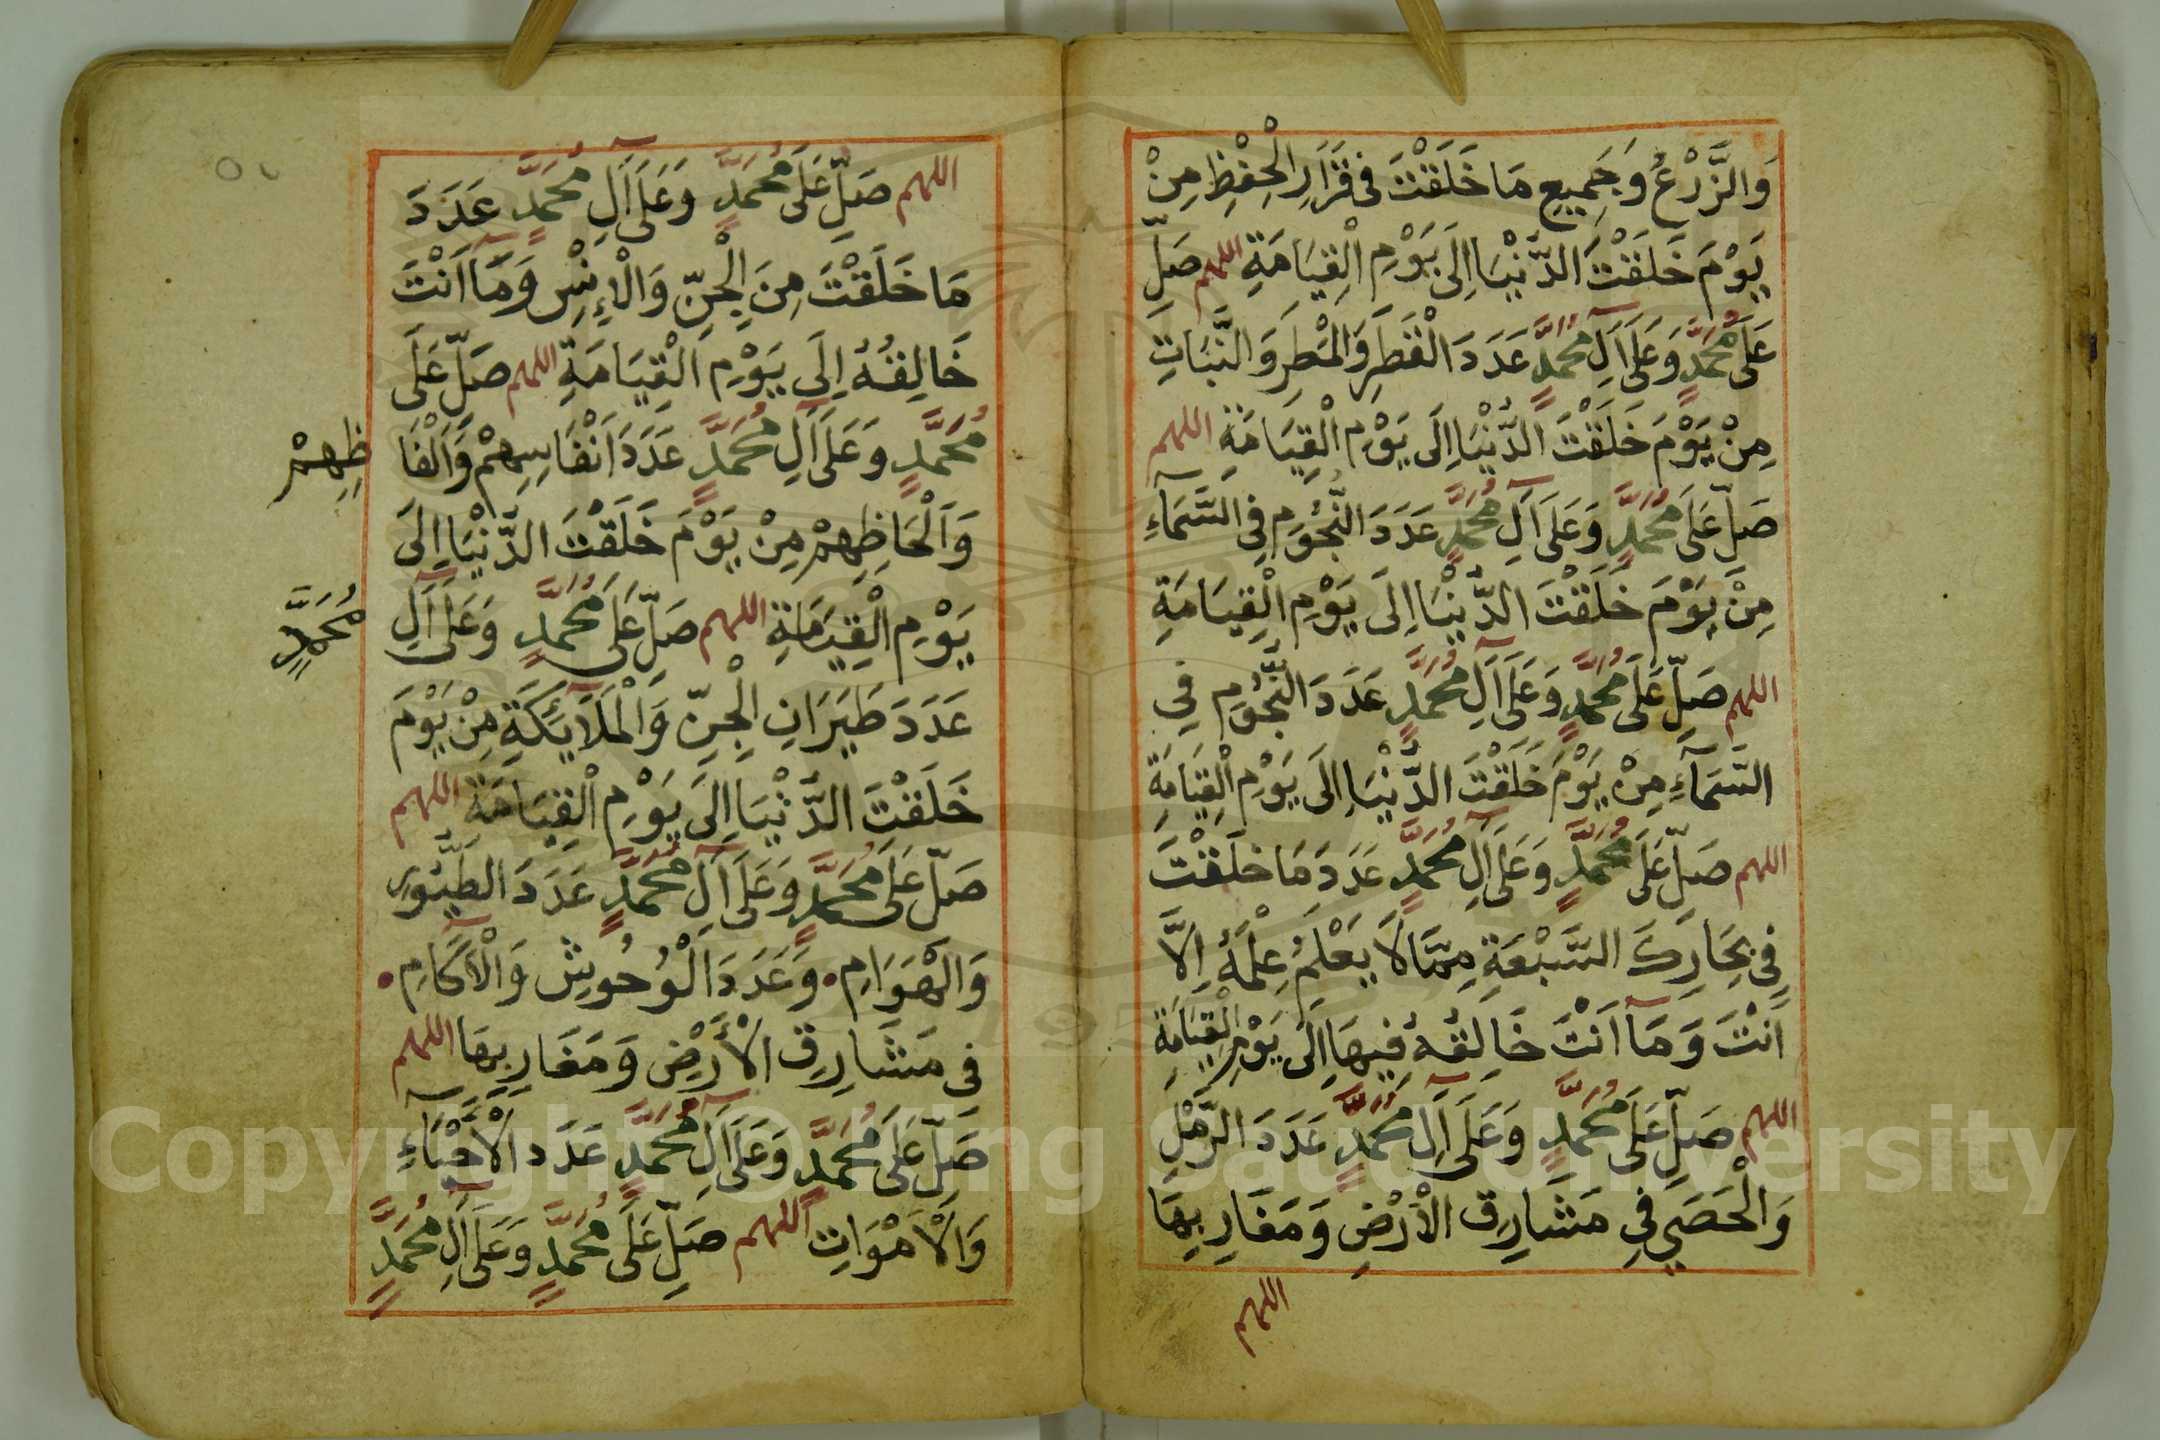 وَالزَّرْعِ وَجَمِيعِ مَا خَلَقْتَ فِى قَرَارِ الْحِفْظِ مِنْ
يَوْمَ خَلَقْتَ الدُّنْيَا اِلَى يَوْمِ الْقِيَامَةِ اللهم صَلِّ
عَلَى مُحَمَّدٍ وَعَلَى آلِ مُحَمَّدٍ عَدَدَ الْقَطْرِ وَالْمَطَرِ وَالنَّبَاتِ
مِنْ يَوْمَ خَلَقْتَ الدُّنْيَا اِلَى يَوْمِ الْقِيَامَةِ اللهم
صَلِّ عَلَى مُحَمَّدٍ وَعَلَى آلِ مُحَمَّدٍ عَدَدَ النُّجُومِ فِى السَّمَآءِ
مِنْ يَوْمَ خَلَقْتَ الدُّنْيَا اِلَى يَوْمِ الْقِيَامَةِ
اللهم صَلِّ عَلَى مُحَمَّدٍ وَعَلَى آلِ مُحَمَّدٍ عَدَدَ النُّجُومِ فِي
السَّمَآءِ مِنْ يَوْمَ خَلَقْتَ الدُّنْيَا اِلَى يَوْمِ الْقِيَامَةِ
اللهم صَلِّ عَلَى مُحَمَّدٍ وَعَلَى آلِ مُحَمَّدٍ عَدَدَ مَا خَلَقْتَ
فِي بِحَارِكَ السَّبْعَةِ مِمَّا لَا يَعْلَمُ عِلْمَهُ اِلَّا
اَنْتَ وَمَآ اَنْتَ خَالِقُهُ فِيهَا اِلَى يَوْمِ الْقِيَامَةِ
اللهم صَلِّ عَلَى مُحَمَّدٍ وَعَلَى آلِ مُحَمَّدٍ عَدَدَ الرَّمْلِ
وَالْحَصَي فِي مَشَارِقِ الْأَرْضِ وَمَغَارِبِهَا
اللهم
اللهم صَلِّ عَلَى مُحَمَّدٍ وَعَلَى آلِ مُحَمَّدٍ عَدَدَ
مَا خَلَقْتَ مِنَ الْجِنِّ وَالْاِنْسِ وَمَآ اَنْتَ
خَالِقُهُ اِلَى يَوْمِ الْقِيَامَةِ اللهم صَلِّ عَلَى
مُحَمَّدٍ وَعَلَى آلِ مُحَمَّدٍ عَدَدَ اَنْفَاسِهِمْ وَاَلْفَا
ظِهِمْ
وَاَلْحَاظِهِمْ مِنْ يَوْمَ خَلَقْتَ الدُّنْيَا اِلَى
يَوْمِ الْقِيَامَةِ اللهم صَلِّ عَلَى مُحَمَّدٍ وَعَلَى آلِ
مُحَمَّدٍ
عَدَدَ طَيَرَانِ الْجِنِّ وَالْمَلَآيِكَةِ مِنْ يَوْمَ
خَلَقْتَ الدُّنْيَا اِلَى يَوْمِ الْقِيَامَةِ اللهم
صَلِّ عَلَى مُحَمَّدٍ وَعَلَى آلِ مُحَمَّدٍ عَدَدَ الطُّيُّورِ
وَالْهَوَامِ وَعَدَدَ الْوُحُوشِ وَالْآكَامِ
فِى مَشَارِقِ الْأَرْضِ وَمَغَارِبِهَا اللهم
صَلِّ عَلَى مُحَمَّدٍ وَعَلَى آلِ مُحَمَّدٍ عَدَدَ الْأَحْيَآءِ
وَالْأَمْوَاتِ اللهم صَلِّ عَلَى مُحَمَّدٍ وَعَلَى آلِ مُحَمَّدٍ
Copyright © King Saud University